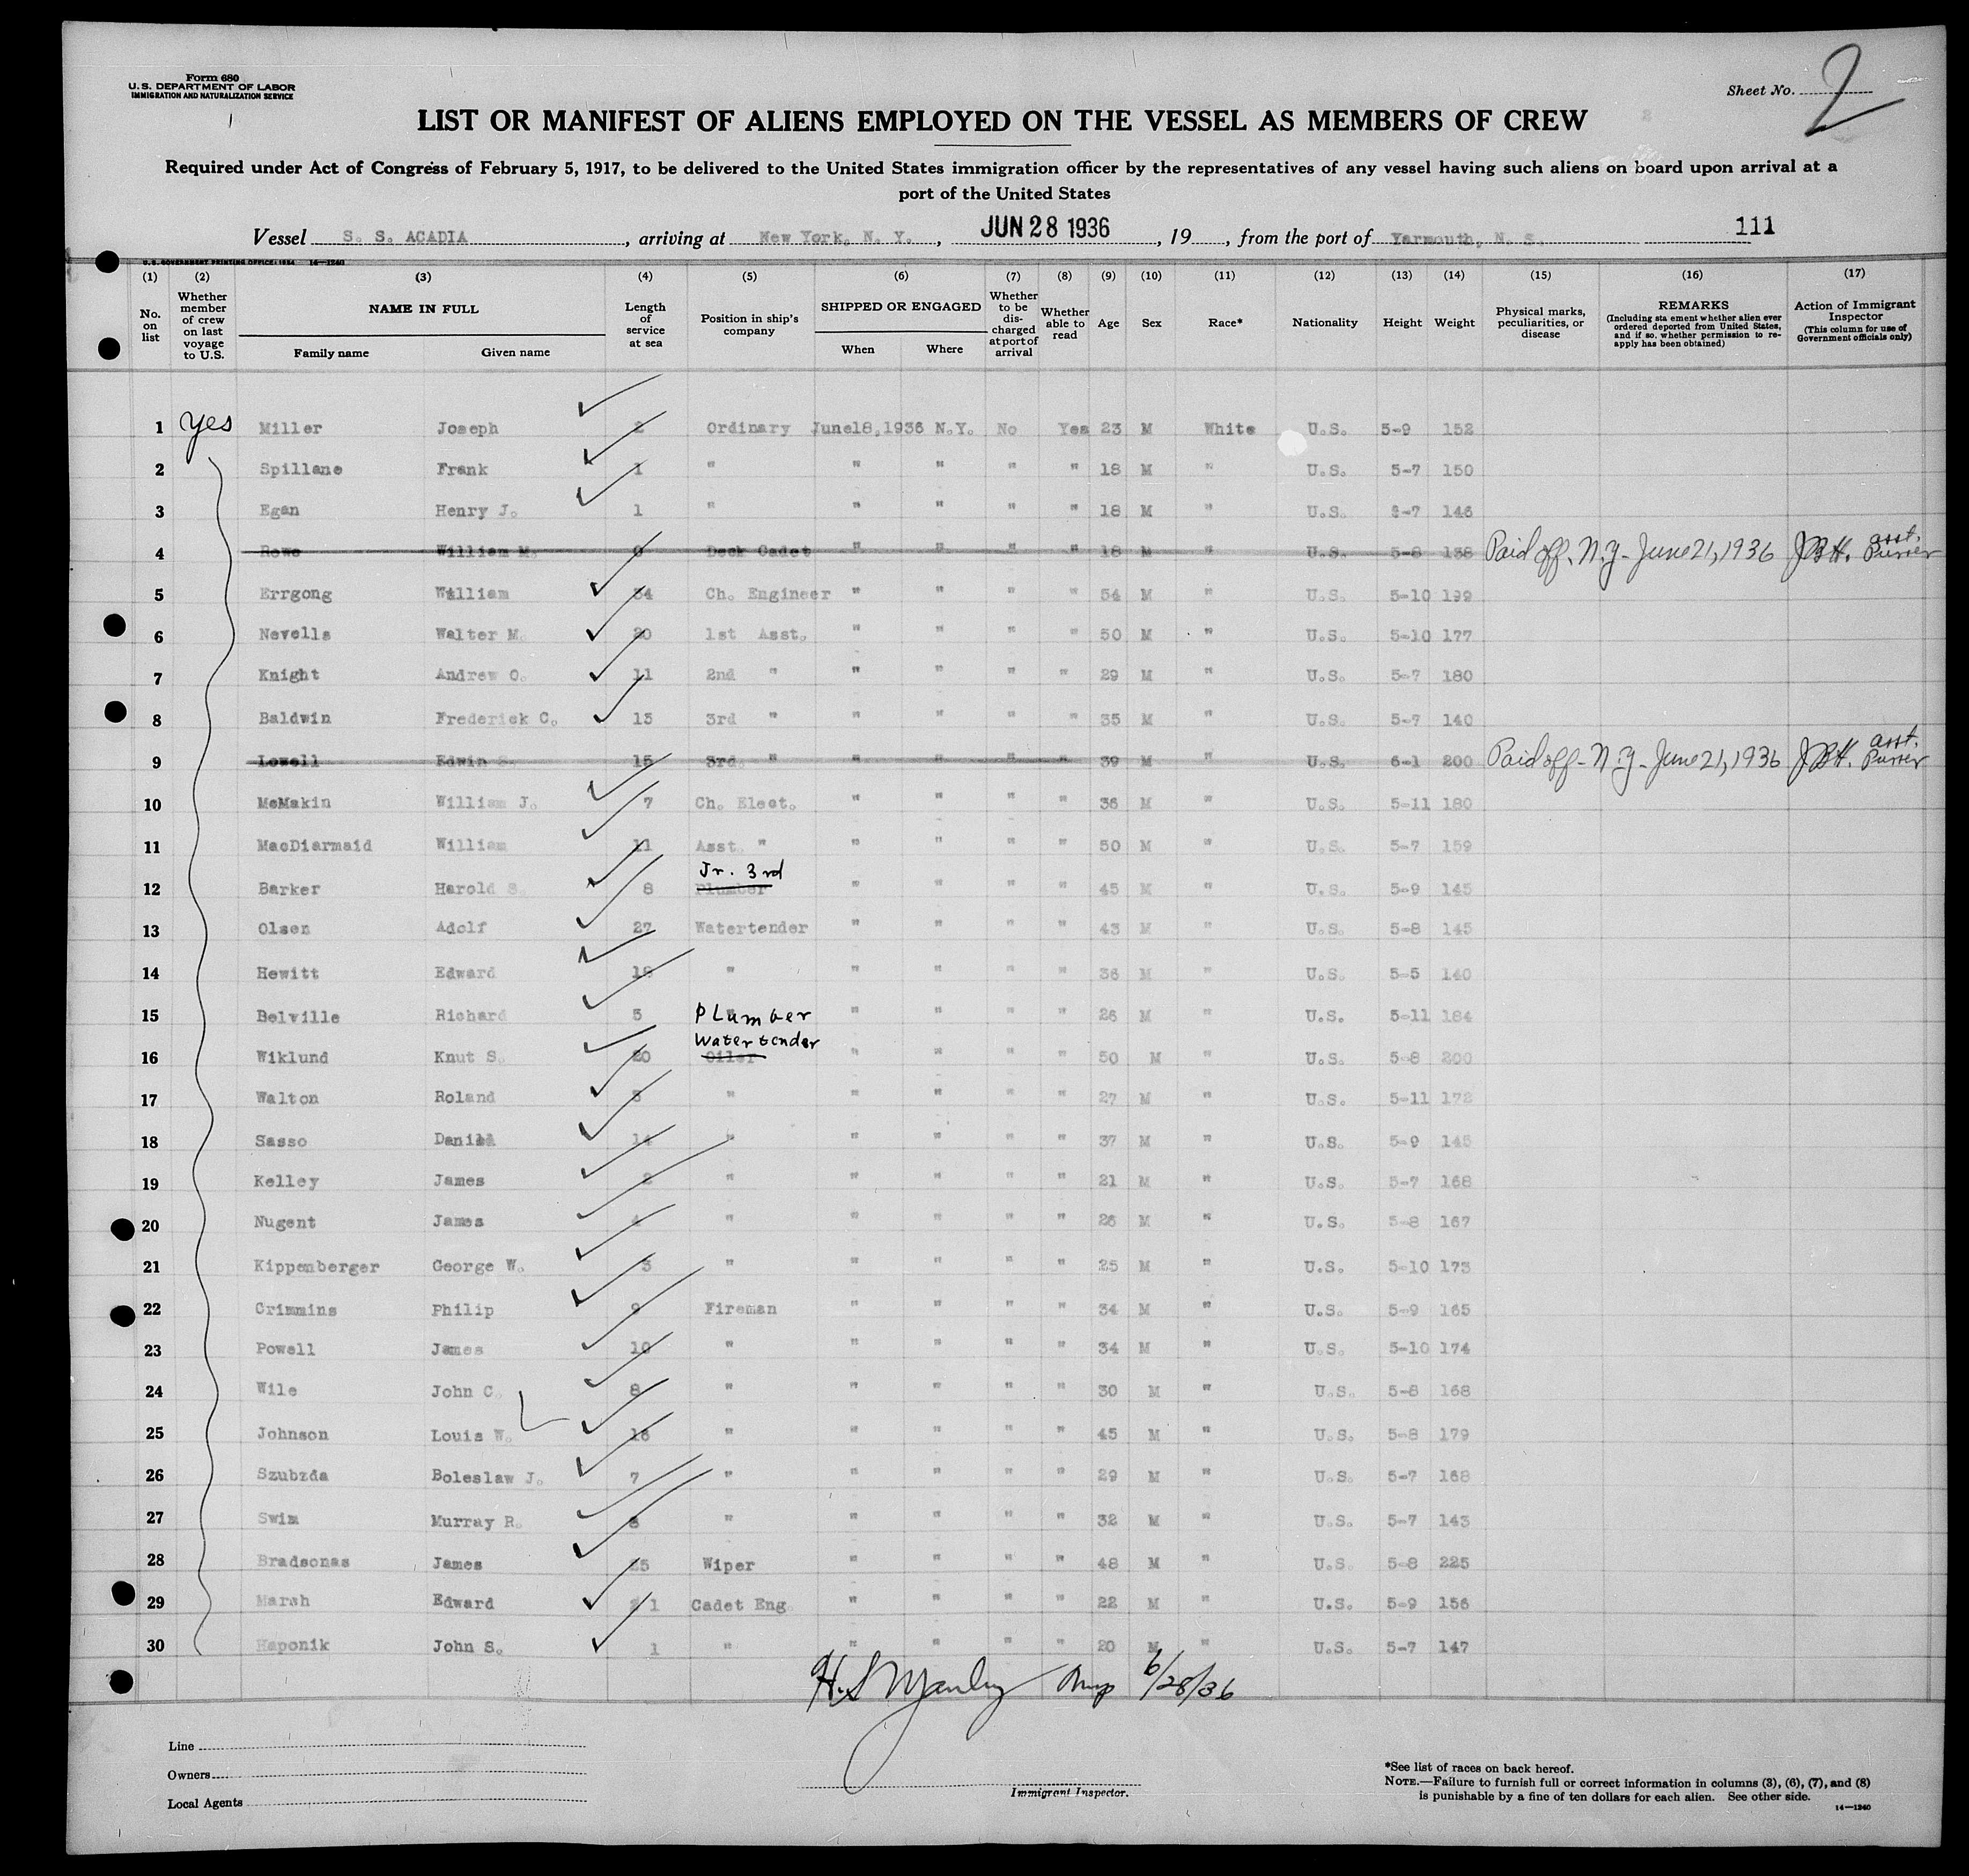 Form 680
U. S. DEPARTMENT OF LABOR
IMMIGRATION AND NATURALIZATION SERVICE
Sheet No. 2
LIST OR MANIFEST OF ALIENS EMPLOYED ON THE VESSEL AS MEMBERS OF CREW
Required under Act of Congress of February 5, 1917, to be delivered to the United States immigration officer by the representatives of any vessel having such aliens on board upon arrival at a
port of the United States
Vessel S. S. ACADIA, arriving at New York, N. Y., JUN 28 1936, 19, from the port of Yarmouth, N. S. 111
U. S. GOVERNMENT PRINTING OFFICE: 1934 14—1240
(1) (2) (3) (4) (5) (6) (7) (8) (9) (10) (11) (12) (13) (14) (15) (16) (17)
No. on list
Whether member of crew on last voyage to U.S.
NAME IN FULL
Family name Given name
Length of service at sea
Position in ship's company
SHIPPED OR ENGAGED
When Where
Whether to be discharged at port of arrival
Whether able to read
Age Sex Race* Nationality Height Weight
Physical marks, peculiarities, or disease
REMARKS
(Including sta ement whether alien ever ordered deported from United States, and if so, whether permission to re-apply has been obtained)
Action of Immigrant Inspector
(This column for use of Government officials only)
1 yes Miller Joseph 2 Ordinary June18,1936 N.Y. No Yes 23 M White U.S. 5-9 152
2 Spillane Frank 1 " " " " " 18 M " U.S. 5-7 150
3 Egan Henry J. 1 " " " " " 18 M " U.S. 5-7 146
4 Rowe William M. 0 Deck Cadet " " " " 18 M " U.S. 5-8 138 Paid off, N.Y- June 21, 1936 JBH. asst. Purser
5 Errgong William 34 Ch. Engineer " " " " 54 M " U.S. 5-10 199
6 Nevells Walter M. 20 1st Asst. " " " " 50 M " U.S. 5-10 177
7 Knight Andrew O. 11 2nd " " " " " 29 M " U.S. 5-7 180
8 Baldwin Frederick C. 13 3rd " " " " " 35 M " U.S. 5-7 140
9 Lowell Edwin S. 15 3rd " " " " " 39 M " U.S. 6-1 200 Paid off- N.Y- June 21, 1936 JBH. asst. Purser
10 McMakin William J. 7 Ch. Elect. " " " " 36 M " U.S. 5-11 180
11 MacDiarmaid William 11 Asst. " " " " " 50 M " U.S. 5-7 159
12 Barker Harold S. 8 Plumber Jr. 3rd " " " " 45 M " U.S. 5-9 145
13 Olsen Adolf 27 Watertender " " " " 43 M " U.S. 5-8 145
14 Hewitt Edward 18 " " " " " 36 M " U.S. 5-5 140
15 Belville Richard 5 Plumber " " " " 26 M " U.S. 5-11 184
16 Wiklund Knut S. 20 Oiler Watertender " " " " 50 M " U.S. 5-8 200
17 Walton Roland 3 " " " " " 27 M " U.S. 5-11 172
18 Sasso Daniel 14 " " " " " 37 M " U.S. 5-9 145
19 Kelley James 2 " " " " " 21 M " U.S. 5-7 168
20 Nugent James 4 " " " " " 26 M " U.S. 5-8 167
21 Kippenberger George W. 3 " " " " " 25 M " U.S. 5-10 173
22 Crimmins Philip 9 Fireman " " " " 34 M " U.S. 5-9 165
23 Powell James 10 " " " " " 34 M " U.S. 5-10 174
24 Wile John C. 8 " " " " " 30 M " U.S. 5-8 168
25 Johnson Louis W. 16 " " " " " 45 M " U.S. 5-8 179
26 Szubzda Boleslaw J. 7 " " " " " 29 M " U.S. 5-7 168
27 Swim Murray R. 8 " " " " " 32 M " U.S. 5-7 143
28 Bradsonas James 25 Wiper " " " " 48 M " U.S. 5-8 225
29 Marsh Edward 1 Cadet Eng. " " " " 22 M " U.S. 5-9 156
30 Haponik John S. 1 " " " " " 20 M " U.S. 5-7 147
H.S. Manley 6/28/36
Line
Owners
Local Agents
Immigrant Inspector.
*See list of races on back hereof.
NOTE.—Failure to furnish full or correct information in columns (3), (6), (7), and (8)
is punishable by a fine of ten dollars for each alien. See other side.
14—1240